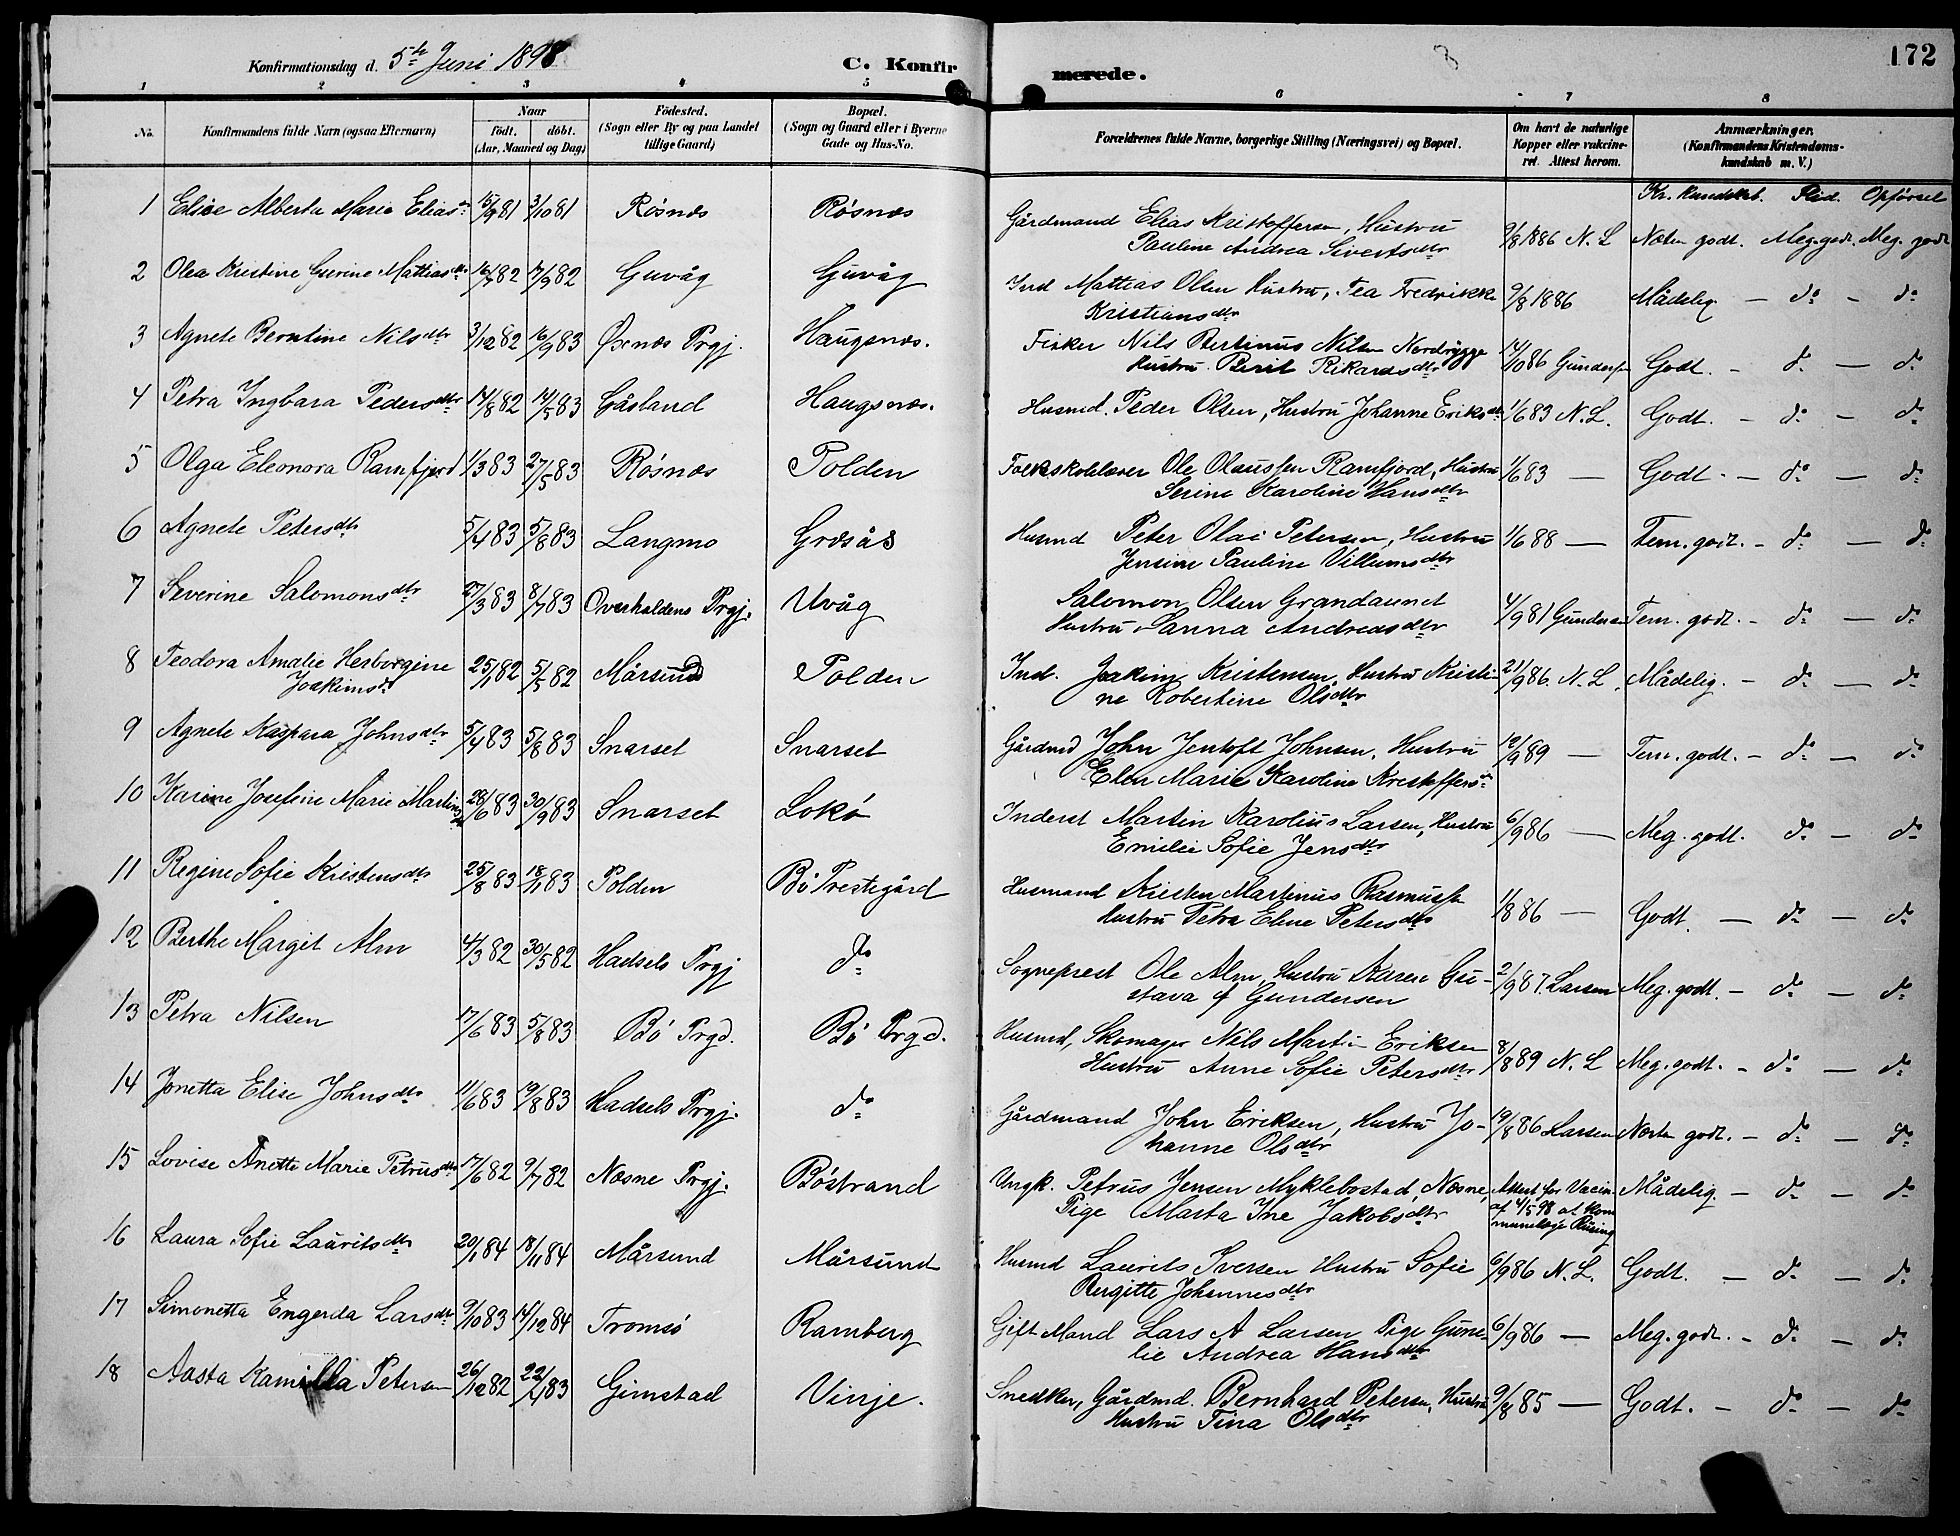 Konfirmationsdag d. 5te Juni 1898 C. Konfirmerede. 172
1 2 3 4 5 6 7 8
No. Konfirmandens fulde Navn (ogsaa Efternavn) Naar født. døbt. (Aar, Maaned og Dag) Fødested. (Sogn eller By og paa Landet tillige Gaard) Bopæl. (Sogn og Gaard eller i Byerne Gade og Hus-No. Forældrenes fulde Navne, borgerlige Stilling (Næringsvei) og Bopæl. Om havt de naturlige Kopper eller vakcineret. Attest herom. Anmærkninger. (Konfirmandens Kristendomskundskab m. V.)
Kr. kundskab. Flid. Opførsel
1 Elise Alberta Marie Eliasdr. 15/9 81 3/10 81 Røsnæs Røsnæs Gårdmand Elias Kristoffersen, Hustru 9/8 1886 N. L Næsten godt. Meg. godt. Meg. godt
Pauline Andrea Sivertsdtr
2 Olea Kristine Gjerine Mattiasdtr 16/7 82 17/9 82 Guvåg Guvåg Ind Mattias Olsen Hustru, Tea Fredrikke 9/8 1886 Mådelig — do — do
Kristiansdtr
3 Agnete Berntine Nilsdtr 3/12 82 16/9 83 Øxnæs Prgj. Haugsnæs. Fisker Nils Bertinus Nilsen Nordrygge 14/10 86 Gundersen Godt. — do — do
Hustru Berit Rikardsdtr
4 Petra Ingbara Pedersdtr 14/8 82 14/5 83 Gåsland Haugsnæs. Husmd. Peder Olsen, Hustru Johanne Eriksdr 1/6 83 N. L. Godt. — do — do
5 Olga Eleonora Ramfjord 1/3 83 27/5 83 Røsnæs Polden Folkskolelærer Ole Olaussen Ramfjord, Hustru 1/6 83 — Godt. — do — do
Serine Karoline Hansdtr
6 Agnete Petersdtr 5/4 83 5/8 83 Langmo Græsås Husmd Peter Olai Petersen, Hustru 1/6 88 — Tem. godt. — do — do
Jensine Pauline Villumsdtr
7 Severine Salomonsdtr 27/3 83 8/7 83 Overhaldens Prgj. Uvåg Salomon Olsen Grandaunet 4/9 81 Gundersen Tem. godt. — do — do
Hustru Sanna Andreasdtr
8 Teodora Amalie Hesborgine 25/1 82 5/3 82 Mårsund Polden Ind. Joakim Kristensen, Hustru Kristi- 21/9 86. N. L. Mådelig. — do — do
Joakimsdr ne Robertine Olsdtr
9 Agnete Kaspara Johnsdtr 5/4 83 5/8 83 Snarset Snarset Gårdmd John Jentoft Johnsen, Hustru 12/9 89 — Tem. godt. — do — do
Elen Marie Karoline Kristoffersdr
10 Karine Josefine Marie Martinsdr 28/6 83 30/9 83 Snarset Lokø Inderst Martin Karolius Larsen, Hustru 6/9 86 — Meg. godt. do — do
Emelie Sofie Jensdtr
11 Regine Sofie Kristensdtr 25/8 83 18/11 83 Polden Bø Prestegård Husmand Kristen Martinus Rasmussen 1/8 86 — Godt. — do — do
Hustru Petra Eline Petersdtr
12 Berthe Margit Alm 4/3 82 30/5 82 Hadsels Prgj do Sogneprest Ole Alm, Hustru Karen Gu- 2/9 87. Larsen Meg. godt. — do — do
stava f Gundersen
13 Petra Nilsen 17/6 83 5/8 83 Bø Prgd. Bø Prgd. Husmd, Skomager Nils Martin Eriksen 8/8 89 N. L Meg. godt. — do — do
Hustru Anne Sofie Petersdtr
14 Jonetta Elise Johnsdtr 11/6 83 19/8 83 Hadsels Prgj. do Gårdmand John Eriksen, Hustru Jo- 19/8 86 Larsen Næsten godt. — do — do
hanne Olsdtr
15 Lovise Anette Marie Petrusdtr 17/6 82 9/7 82 Næsne Prgj. Bøstrand Ungk. Petrus Jensen Myklebostad, Næsne, Attest for Vacin. Mådelig. — do — do
Pige Marta Ine Jakobsdtr af 4/5 98 at kom
munelæge Rusing
16 Laura Sofie Lauritsdtr 20/1 84 18/11 84 Mårsund Mårsund Husmd Laurits Iversen Hustru Sofie 6/9 86 N. L. Godt. — do — do
Birgitte Johannesdtr
17 Simonetta Engerda Larsdtr 9/10 83 14/12 84 Tromsø Ramberg Gift Mand Lars A Larsen Pige Gune- 6/9 86 — Meg. godt. — do — do
lie Andrea Hansdtr
18 Aasta Kamilla Petersen 26/12 82 22/4 83 Gimstad Vinje. Snedker, Gårdmd. Bernhard Petersen, Hustru 9/8 85 — Godt. — do — do
Hustru Tina Olsdtr